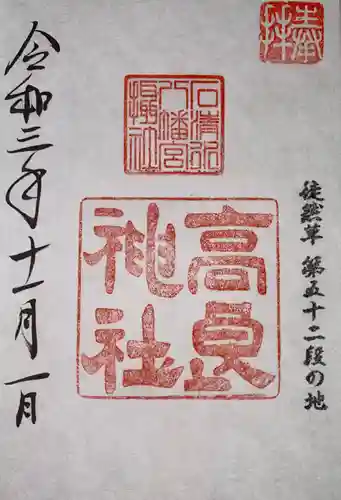 奉拝
徒然草 第五十二段の地
石清水
八幡宮
摂社
高良
神社
令和三年十一月一日